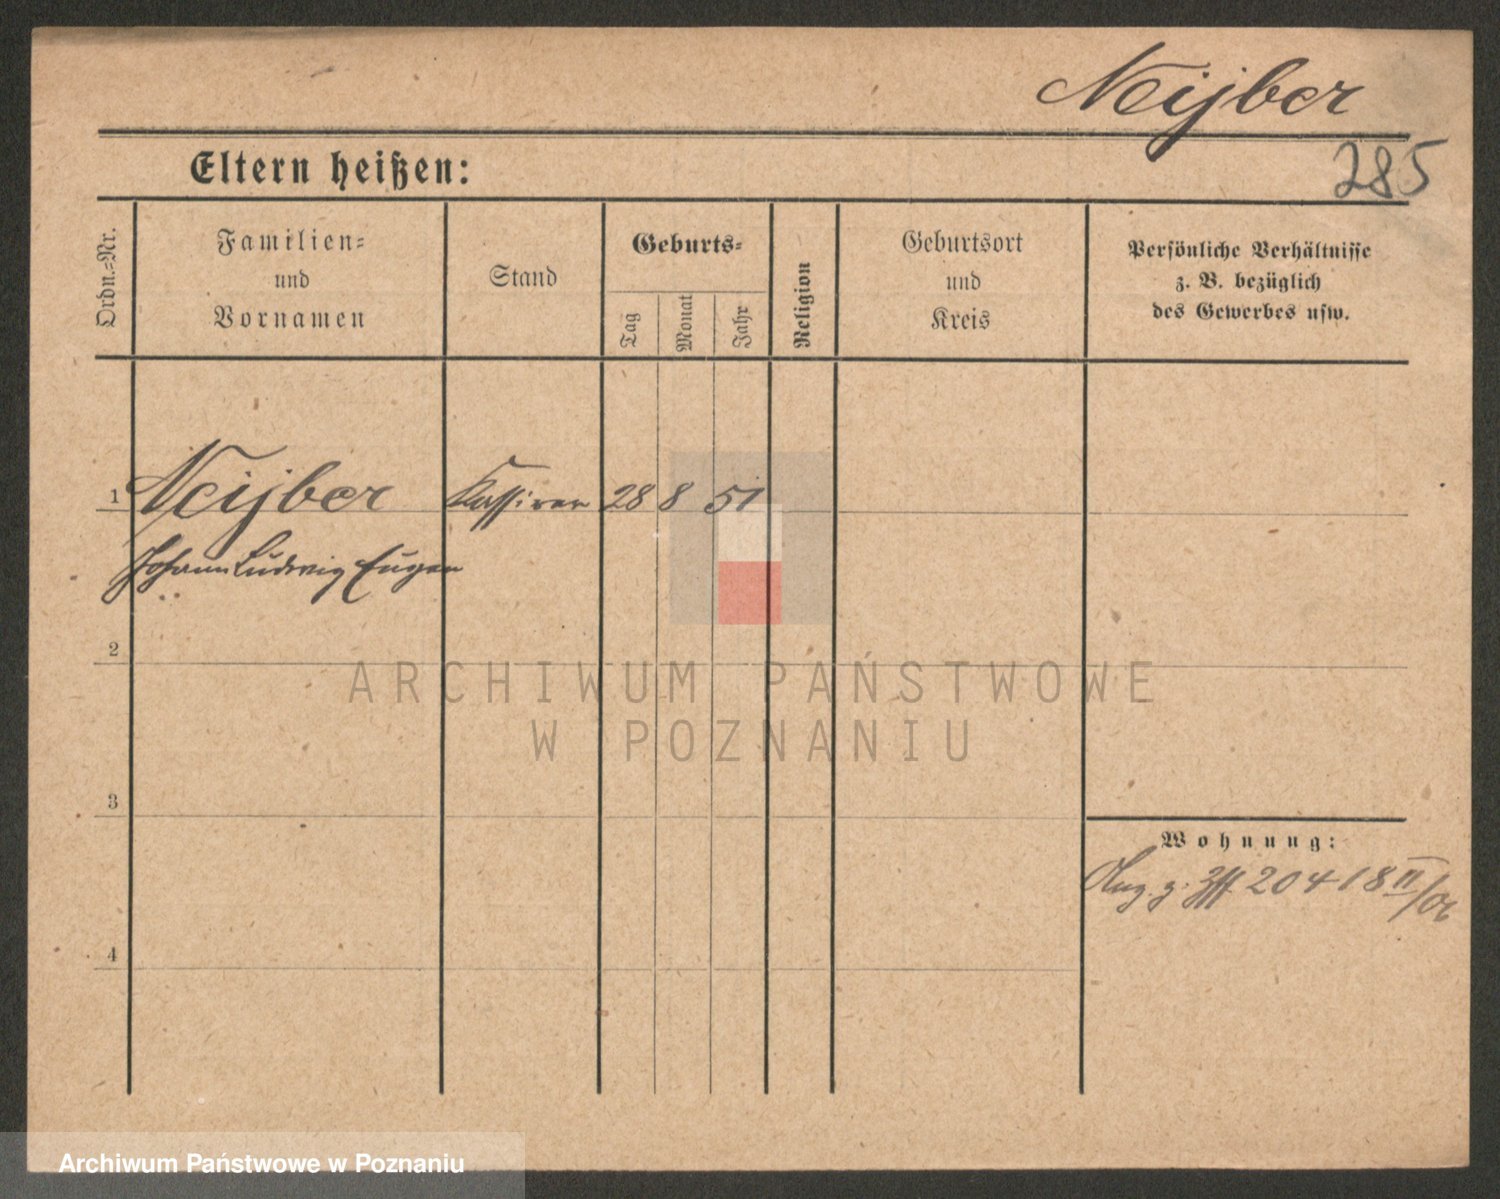 Neijber
285
Eltern heißen:
Ordn.-Nr.
Familien-
und
Vornamen
Stand
Geburts-
Tag
Monat
Jahr
Religion
Geburtsort
und
Kreis
Persönliche Verhältnisse
z. B. bezüglich
des Gewerbes usw.
1 Neijber Kassirer 28 8 51
Johann Ludwig Eugen
2
ARCHIWUM PAŃSTWOWE
W POZNANIU
3
Wohnung:
204 18 II/06
4
Archiwum Państwowe w Poznaniu